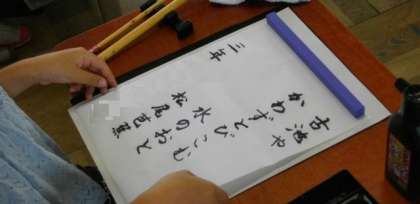 古池や
かわずとびこむ
水のおと
松尾芭蕉
三年